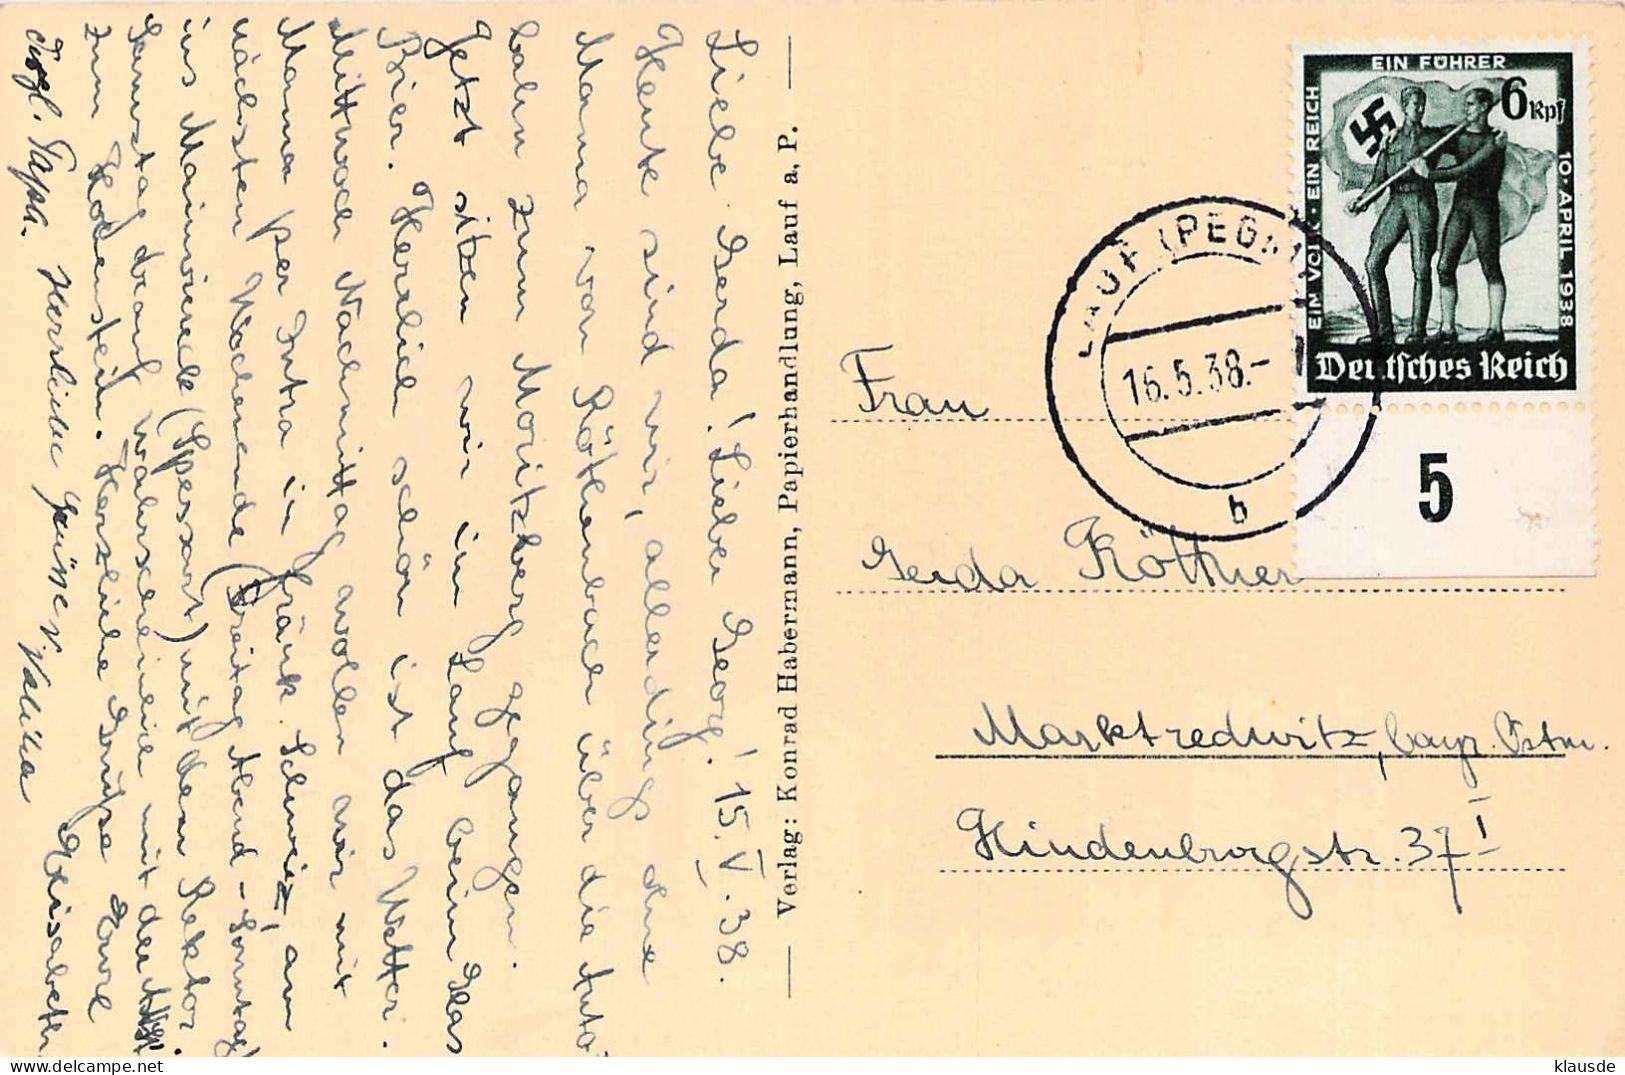 Liebe Gerda! Lieber Georg! 15.V.38.
Heute sind wir, allerdings ohne
Mama von Röthenbach über die Auto
bahn zum Moritzberg gegangen.
Jetzt sitzen wir in Lauf beim Glas
Bier. Herrlich schön ist das Wetter.
Mittwoch Nachmittag wollen wir mit
Mama per Intra in fränk. Schweiz, am
nächsten Wochenende (Freitag Abend - Sonntag)
ins Mainviereck (Spessart) mit dem Rektor.
Samstag drauf wahrscheinlich mit der
zum Hohenstein. Herzliche Grüße Eure
Elisabeth.
Dsgl. Papa. Herzliche Grüsse
Verlag: Konrad Habermann, Papierhandlung, Lauf a. P.
EIN VOLK · EIN REICH
EIN FÜHRER
10. APRIL 1938
6 Rpf
Deutsches Reich
5
LAUF (PEGN
16.5.38.-
b
Frau
Gerda Köttner
Marktredwitz, bayr. Ostm.
Hindenburgstr. 37 I
klausde